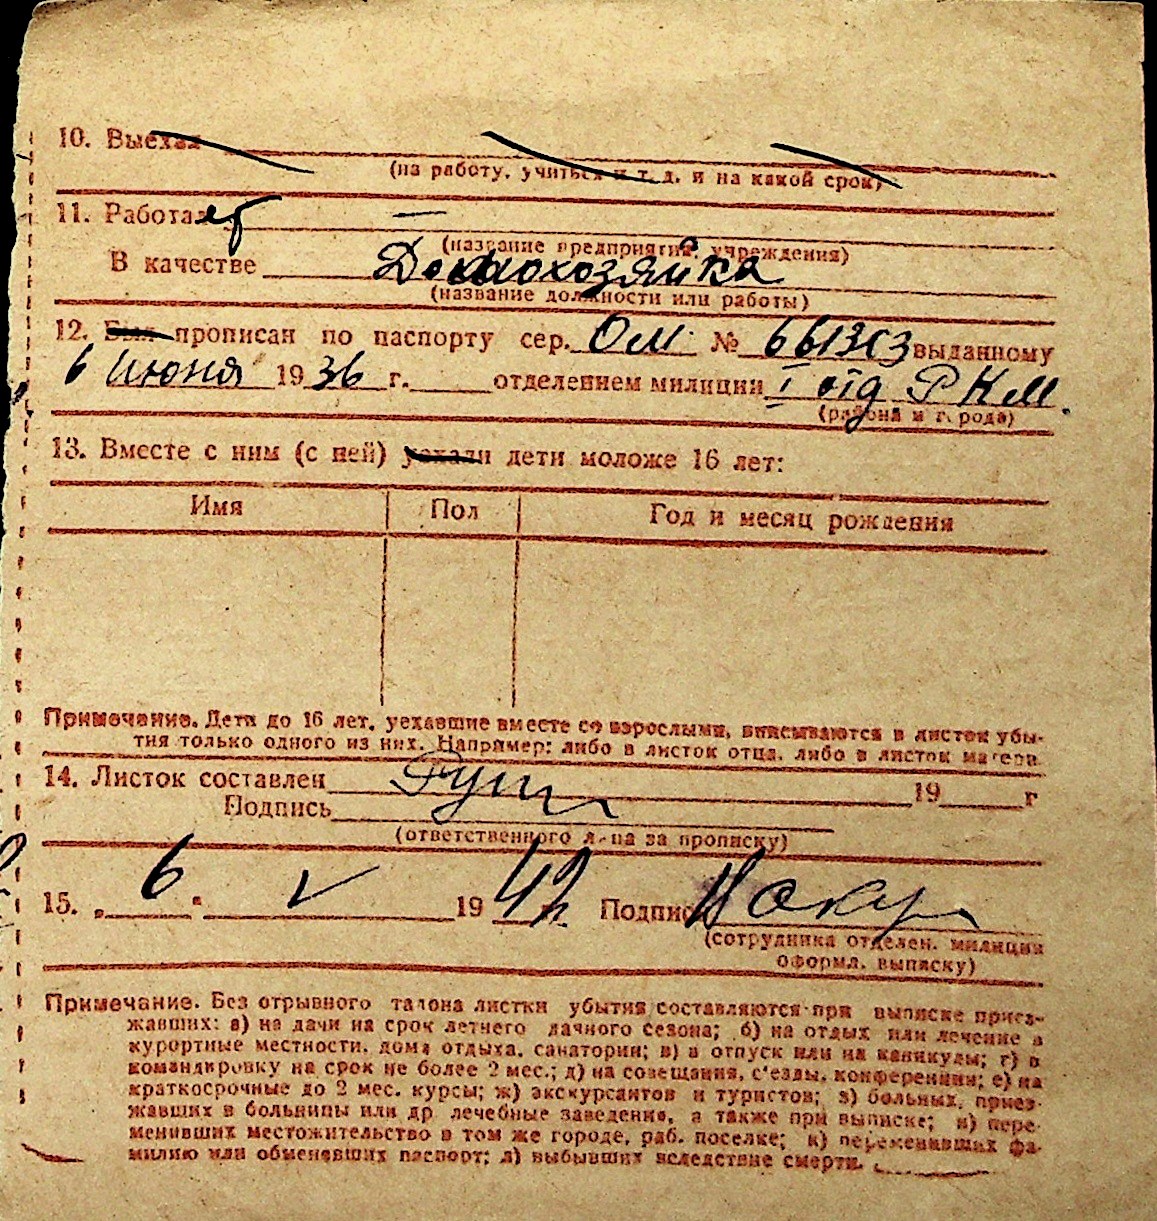 10. Выехал
(на работу, учиться и т. д. и на какой срок)
11. Работает —
(название предприятия, учреждения)
В качестве Домохозяйка
(название должности или работы)
12. Был прописан по паспорту сер. ОМ № 661303 выданному
6 июня 1936 г. отделением милиции I отд РКМ.
(района и города)
13. Вместе с ним (с ней) уехали дети моложе 16 лет:
Имя Пол Год и месяц рождения
Примечание. Дети до 16 лет, уехавшие вместе со взрослыми, вписываются в листок убы-
тия только одного из них. Например: либо в листок отца, либо в листок матери
14. Листок составлен 19 г
Подпись
(ответственного лица за прописку)
15. „ 6 “ V 1942 Подпись
(сотрудника отделен. милиции
оформл. выписку)
Примечание. Без отрывного талона листки убытия составляются при выписке приез-
жавших: а) на дачи на срок летнего дачного сезона; б) на отдых или лечение в
курортные местности, дома отдыха, санатории; в) в отпуск или на каникулы; г) в
командировку на срок не более 2 мес.; д) на совещания, с'езды, конференции; е) на
краткосрочные до 2 мес. курсы; ж) экскурсантов и туристов; з) больных, приез-
жавших в больницы или др лечебные заведения, а также при выписке; и) пере-
менивших местожительство в том же городе, раб. поселке; к) переменивших фа-
милию или обменявших паспорт; л) выбывших вследствие смерти.